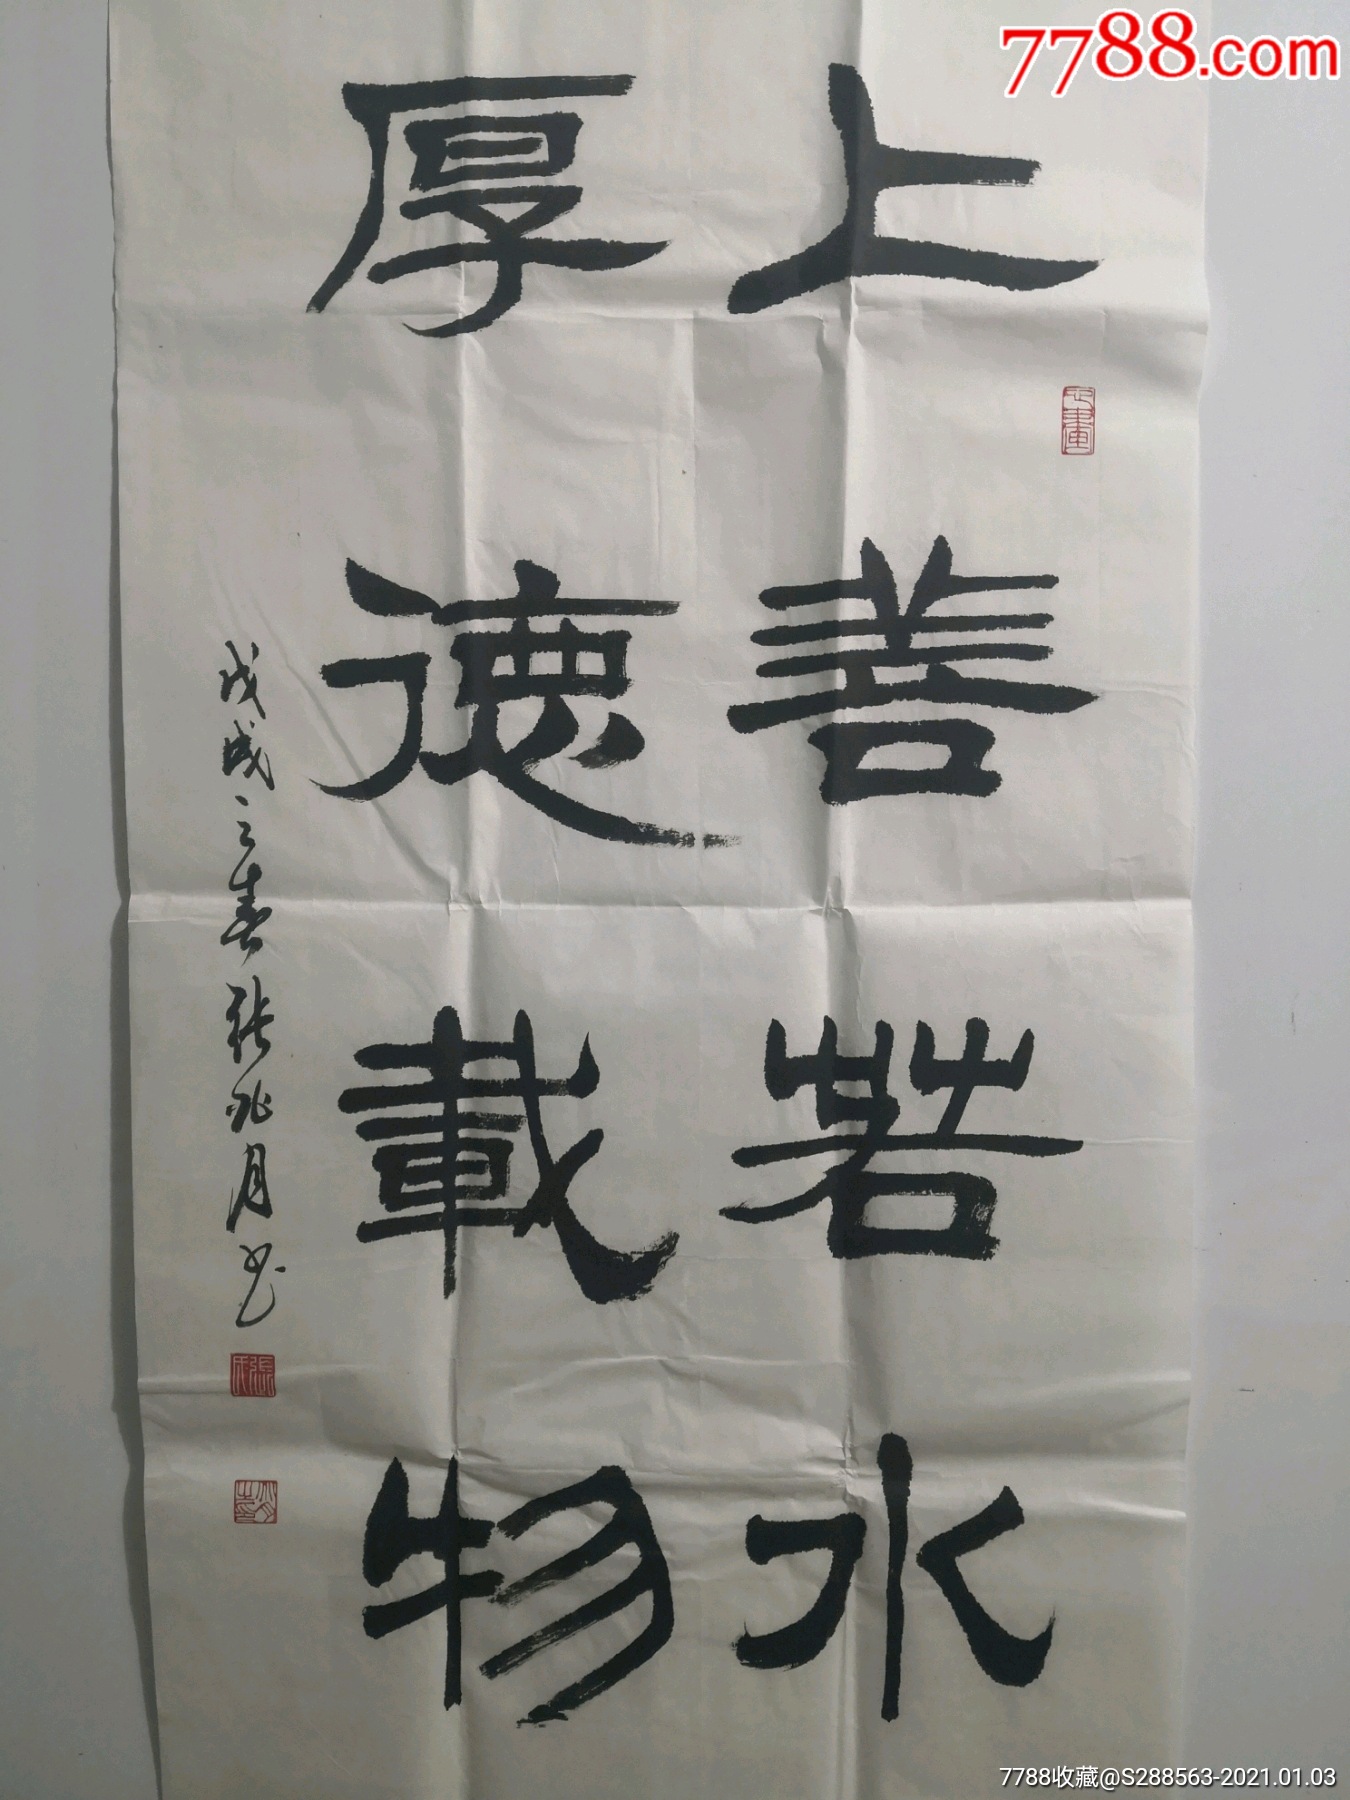 7788.com
上善若水
厚德載物
戊戌之春張兆月书
張氏
7788收藏@S288563-2021.01.03